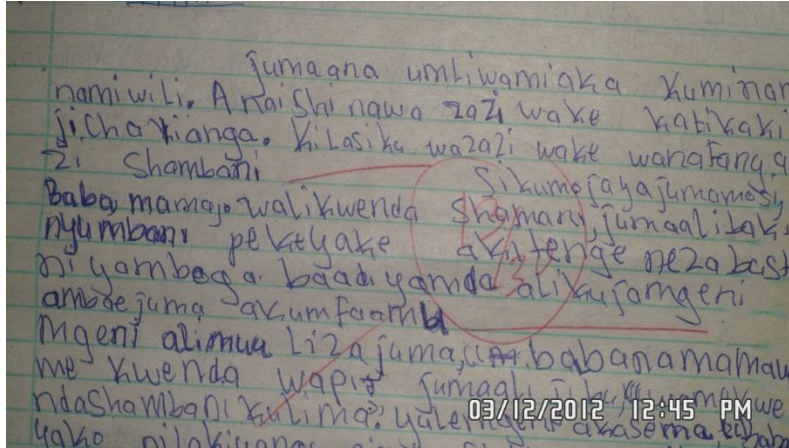 Juma ana umliwamiaka kuminam
namiwili. Anaishi nawa zazi wake katikaki
ji cha kianga. Kilasiku wazazi wake wanafanya
zi shambani
Sikumojayajumamosi,
Baba, mamaje walikwenda shamani, jumaalibaki
nyumbani pekeyake akitenge neza bust
ni yamboga. baadi yamda alikujamgeni
ambae juma akumfaamu
mgeni alimuu liza juma, babanamamau
me kwenda wapi? jumaali
ndashambani kulima? yulemgeni akasema
yako
03/12/2012 12:45 PM